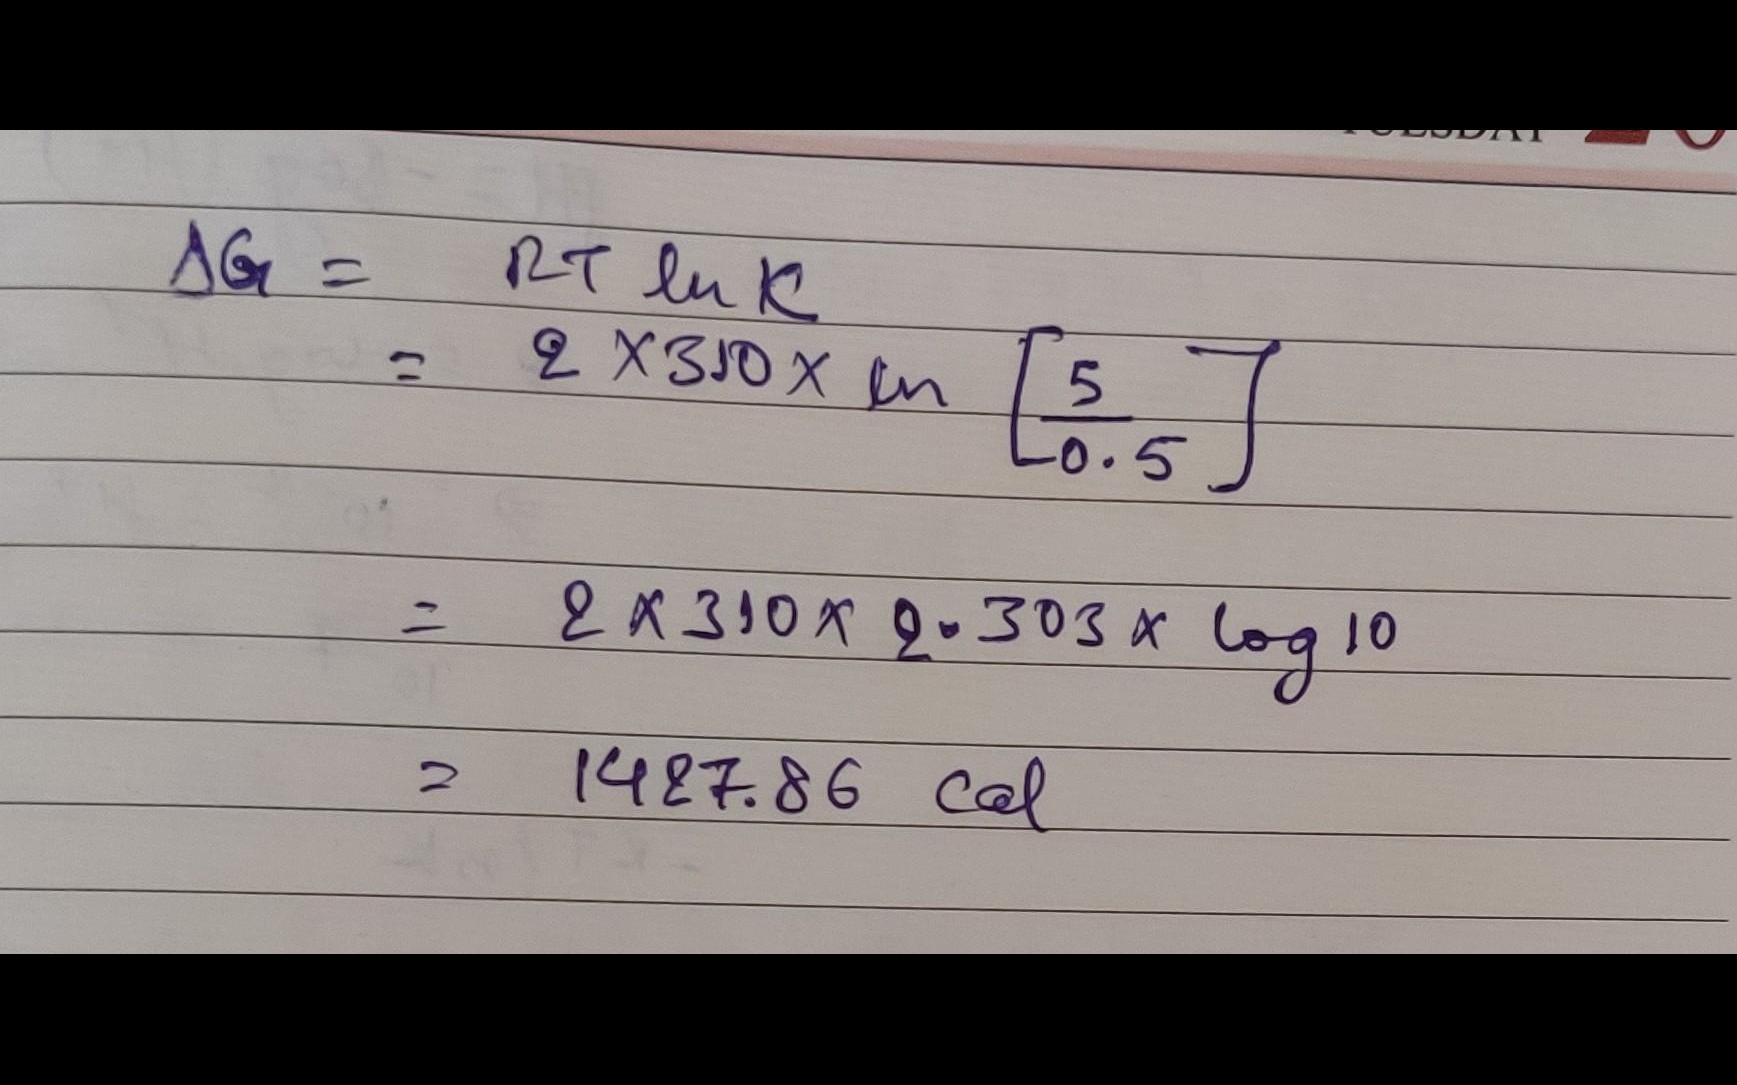 TUESDAY 20
ΔG = RT ln K
= 2 × 310 × ln [5/0.5]
= 2 × 310 × 2.303 × log 10
= 1427.86 Cal